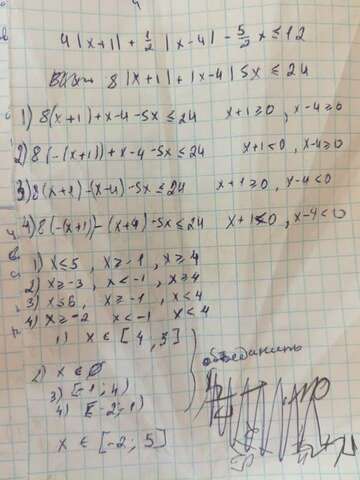 4|x+1|+1/2|x-4|-5/2x≤12
8|x+1|+|x-4|5x≤24
1) 8(x+1)+x-4-5x≤24 x+1≥0, x-4≥0
2) 8(-(x+1))+x-4-5x≤24 x+1<0, x-4≥0
3) 8(x+1)-(x-4)-5x≤24 x+1≥0, x-4<0
4) 8(-(x+1)-(x+4)-5x≤24 x+1<0, x-4<0
1) x≤5, x≥-1, x≥4
2) x≥-3, x<-1, x≥4
3) x≤6, x≥-1, x<4
4) x≥-2 x<-1 x<4
1) x∈[4,5]
объединить
2) x∈∅
3) [-1;4)
4) [-2;-1)
x∈[-2;5]